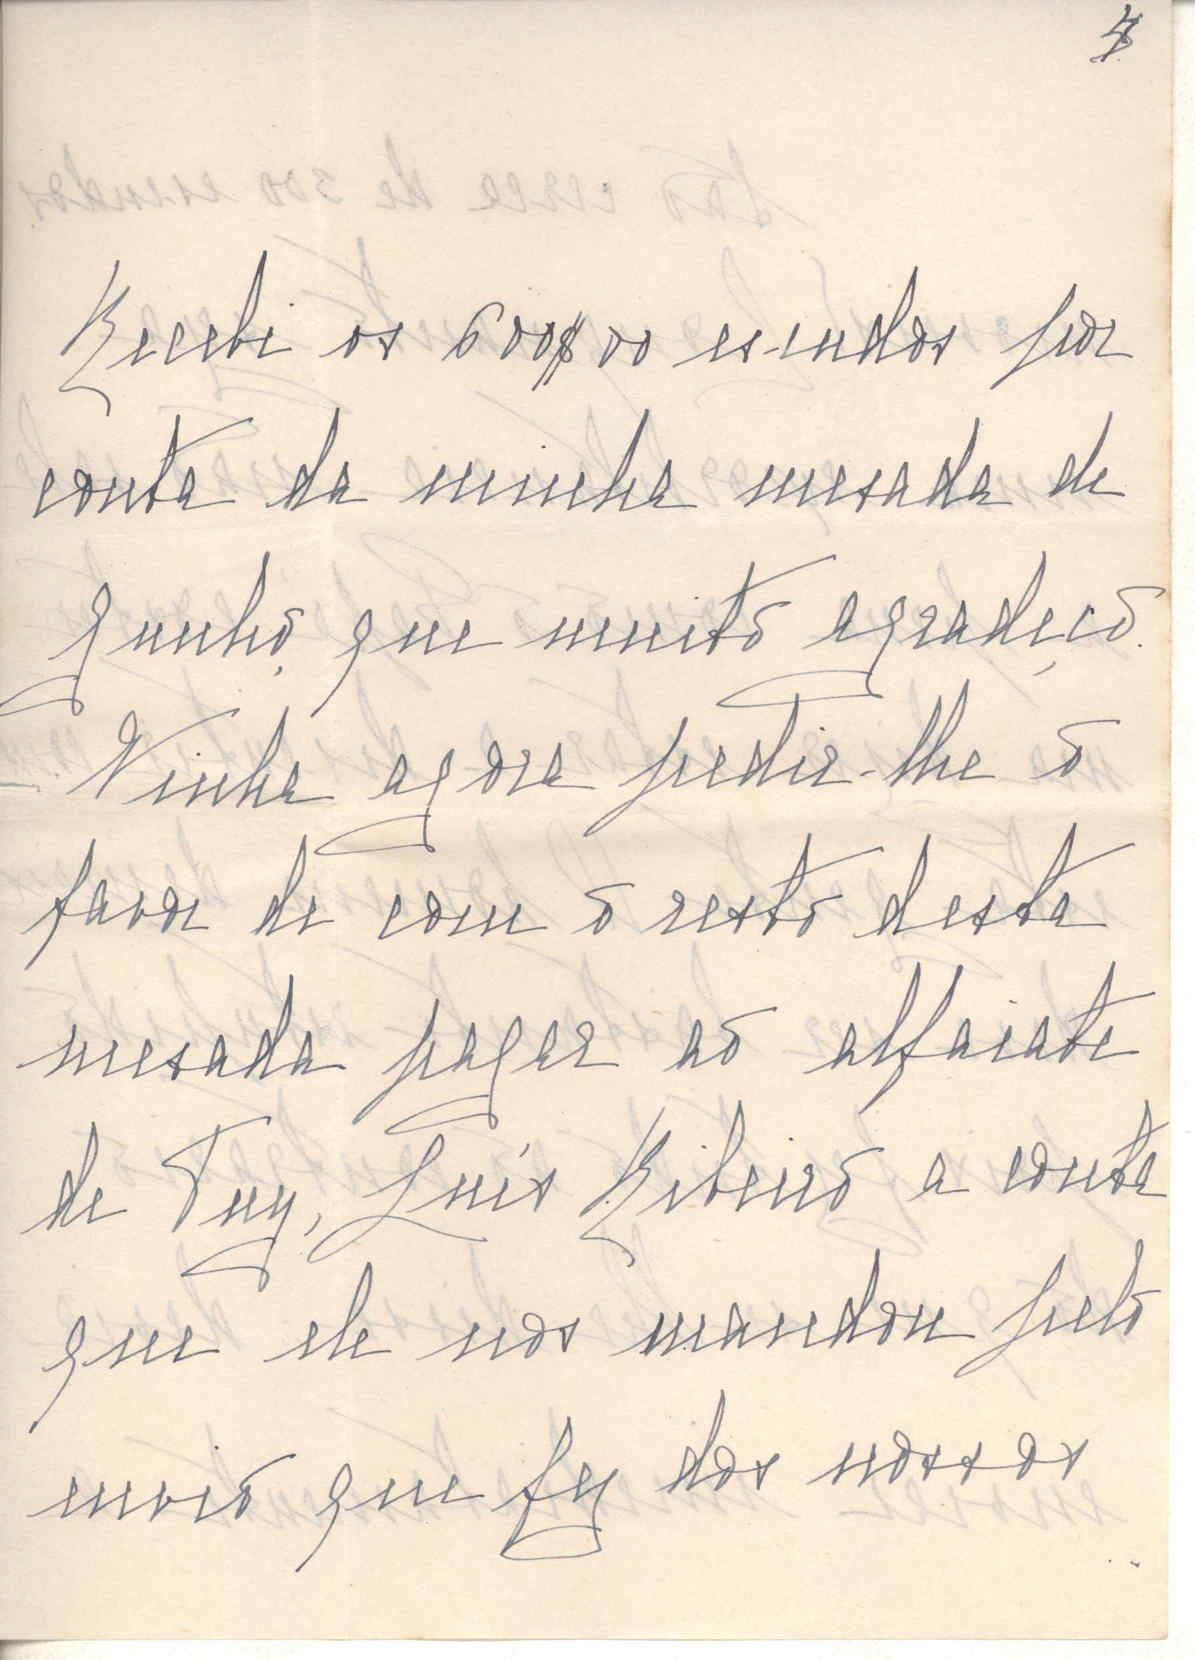 Recebi os 600$00 escudos por
conta da minha mesada de
Junho, que muito agradeço.
Vinha agora pedir-lhe o
favor de com o resto desta
mesada pagar ao alfaiate
de Tuy, Luís Ribeiro a conta
que ele nos mandou pelo
envio que fez dos nossos